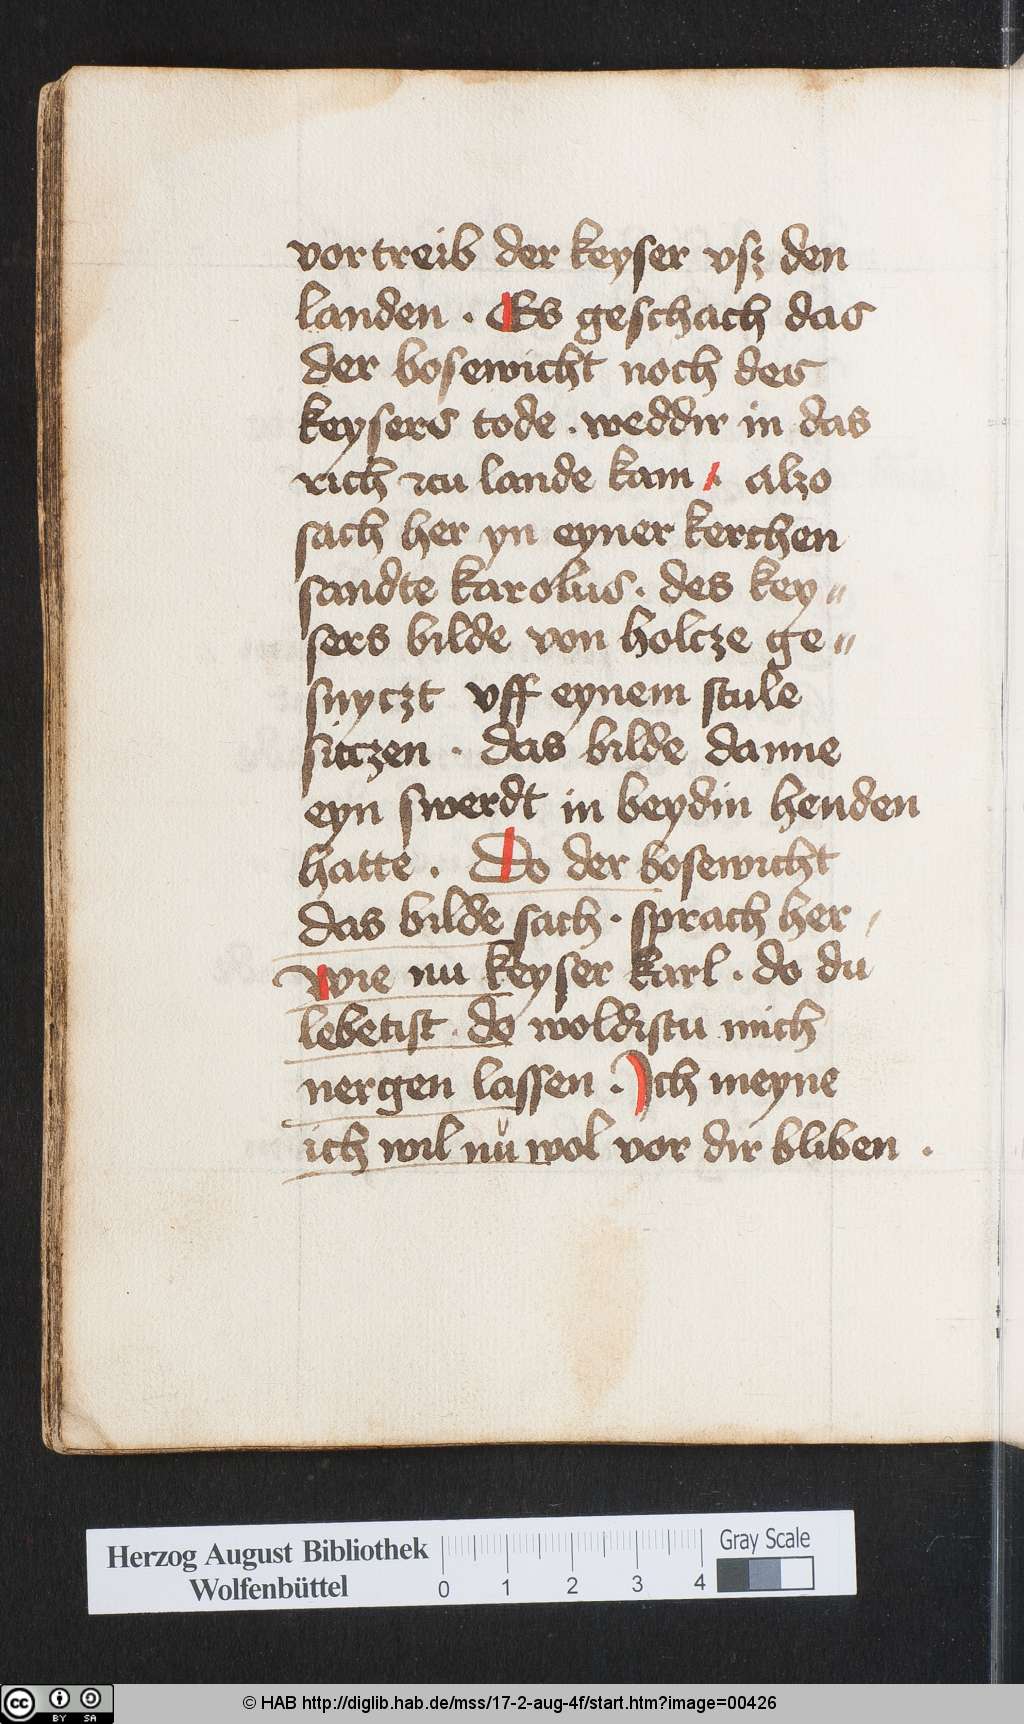 vortreib der keyser vsz den
landen . Es geschach das
der bosewicht noch des
keysers tode . weddir in das
rich zcu lande kam . alzo
sach her yn eyner kerchen
sandte karolus . des key〃
sers bilde von holcze ge〃
snyczt vff eynem stule
sitczen . das bilde danne
eyn swerdt in beydin henden
hatte . Do der bosewicht
das bilde sach . sprach her /
wie nu keyser karl . do du
lebetist . do woldistu mich
nergen lassen . Ich meyne
ich wil nů wol vor dir bliben .
Herzog August Bibliothek
Wolfenbüttel
0 1 2 3 4
Gray Scale
cc BY SA
© HAB http://diglib.hab.de/mss/17-2-aug-4f/start.htm?image=00426